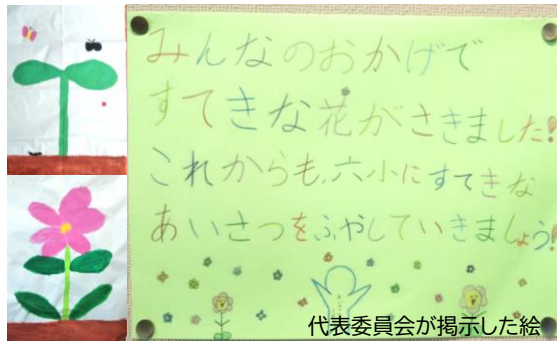 みんなのおかげで
すてきな花がさきました!
これからも、六小にすてきな
あいさつをふやしていきましょう!
代表委員会が掲示した絵